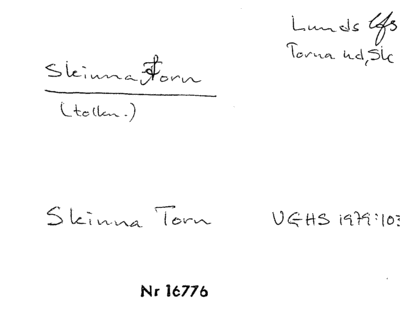 Lunds lfs
Torna hd, Sk
Skinna, Torn
(tolkn.)
Skinna Torn UGHS 1979:103
Nr 16776